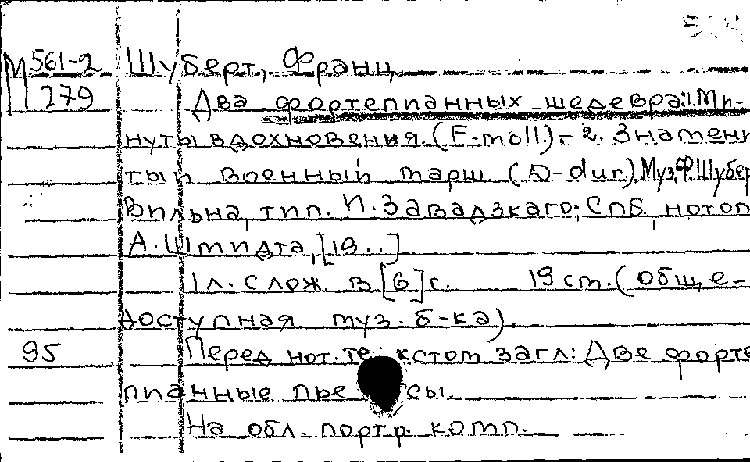 М 561-2 Шуберт, Франц
279 Два фортепианных шедевра: 1. Ми-
нуты вдохновения. (F-moll).- 2. Знамени
тый военный марш (D-dur). Муз. Ф. Шубер
Вильна, тип. И. Завадзкаго; СПБ, нотоп
А. Шмидта, [19..]
1 л. слож. в [6] с. 19 см. (Обще-
доступная муз. б-ка).
95 Перед нот. текстом загл: Две форте
пианные пьесы.
На обл. портр. комп.